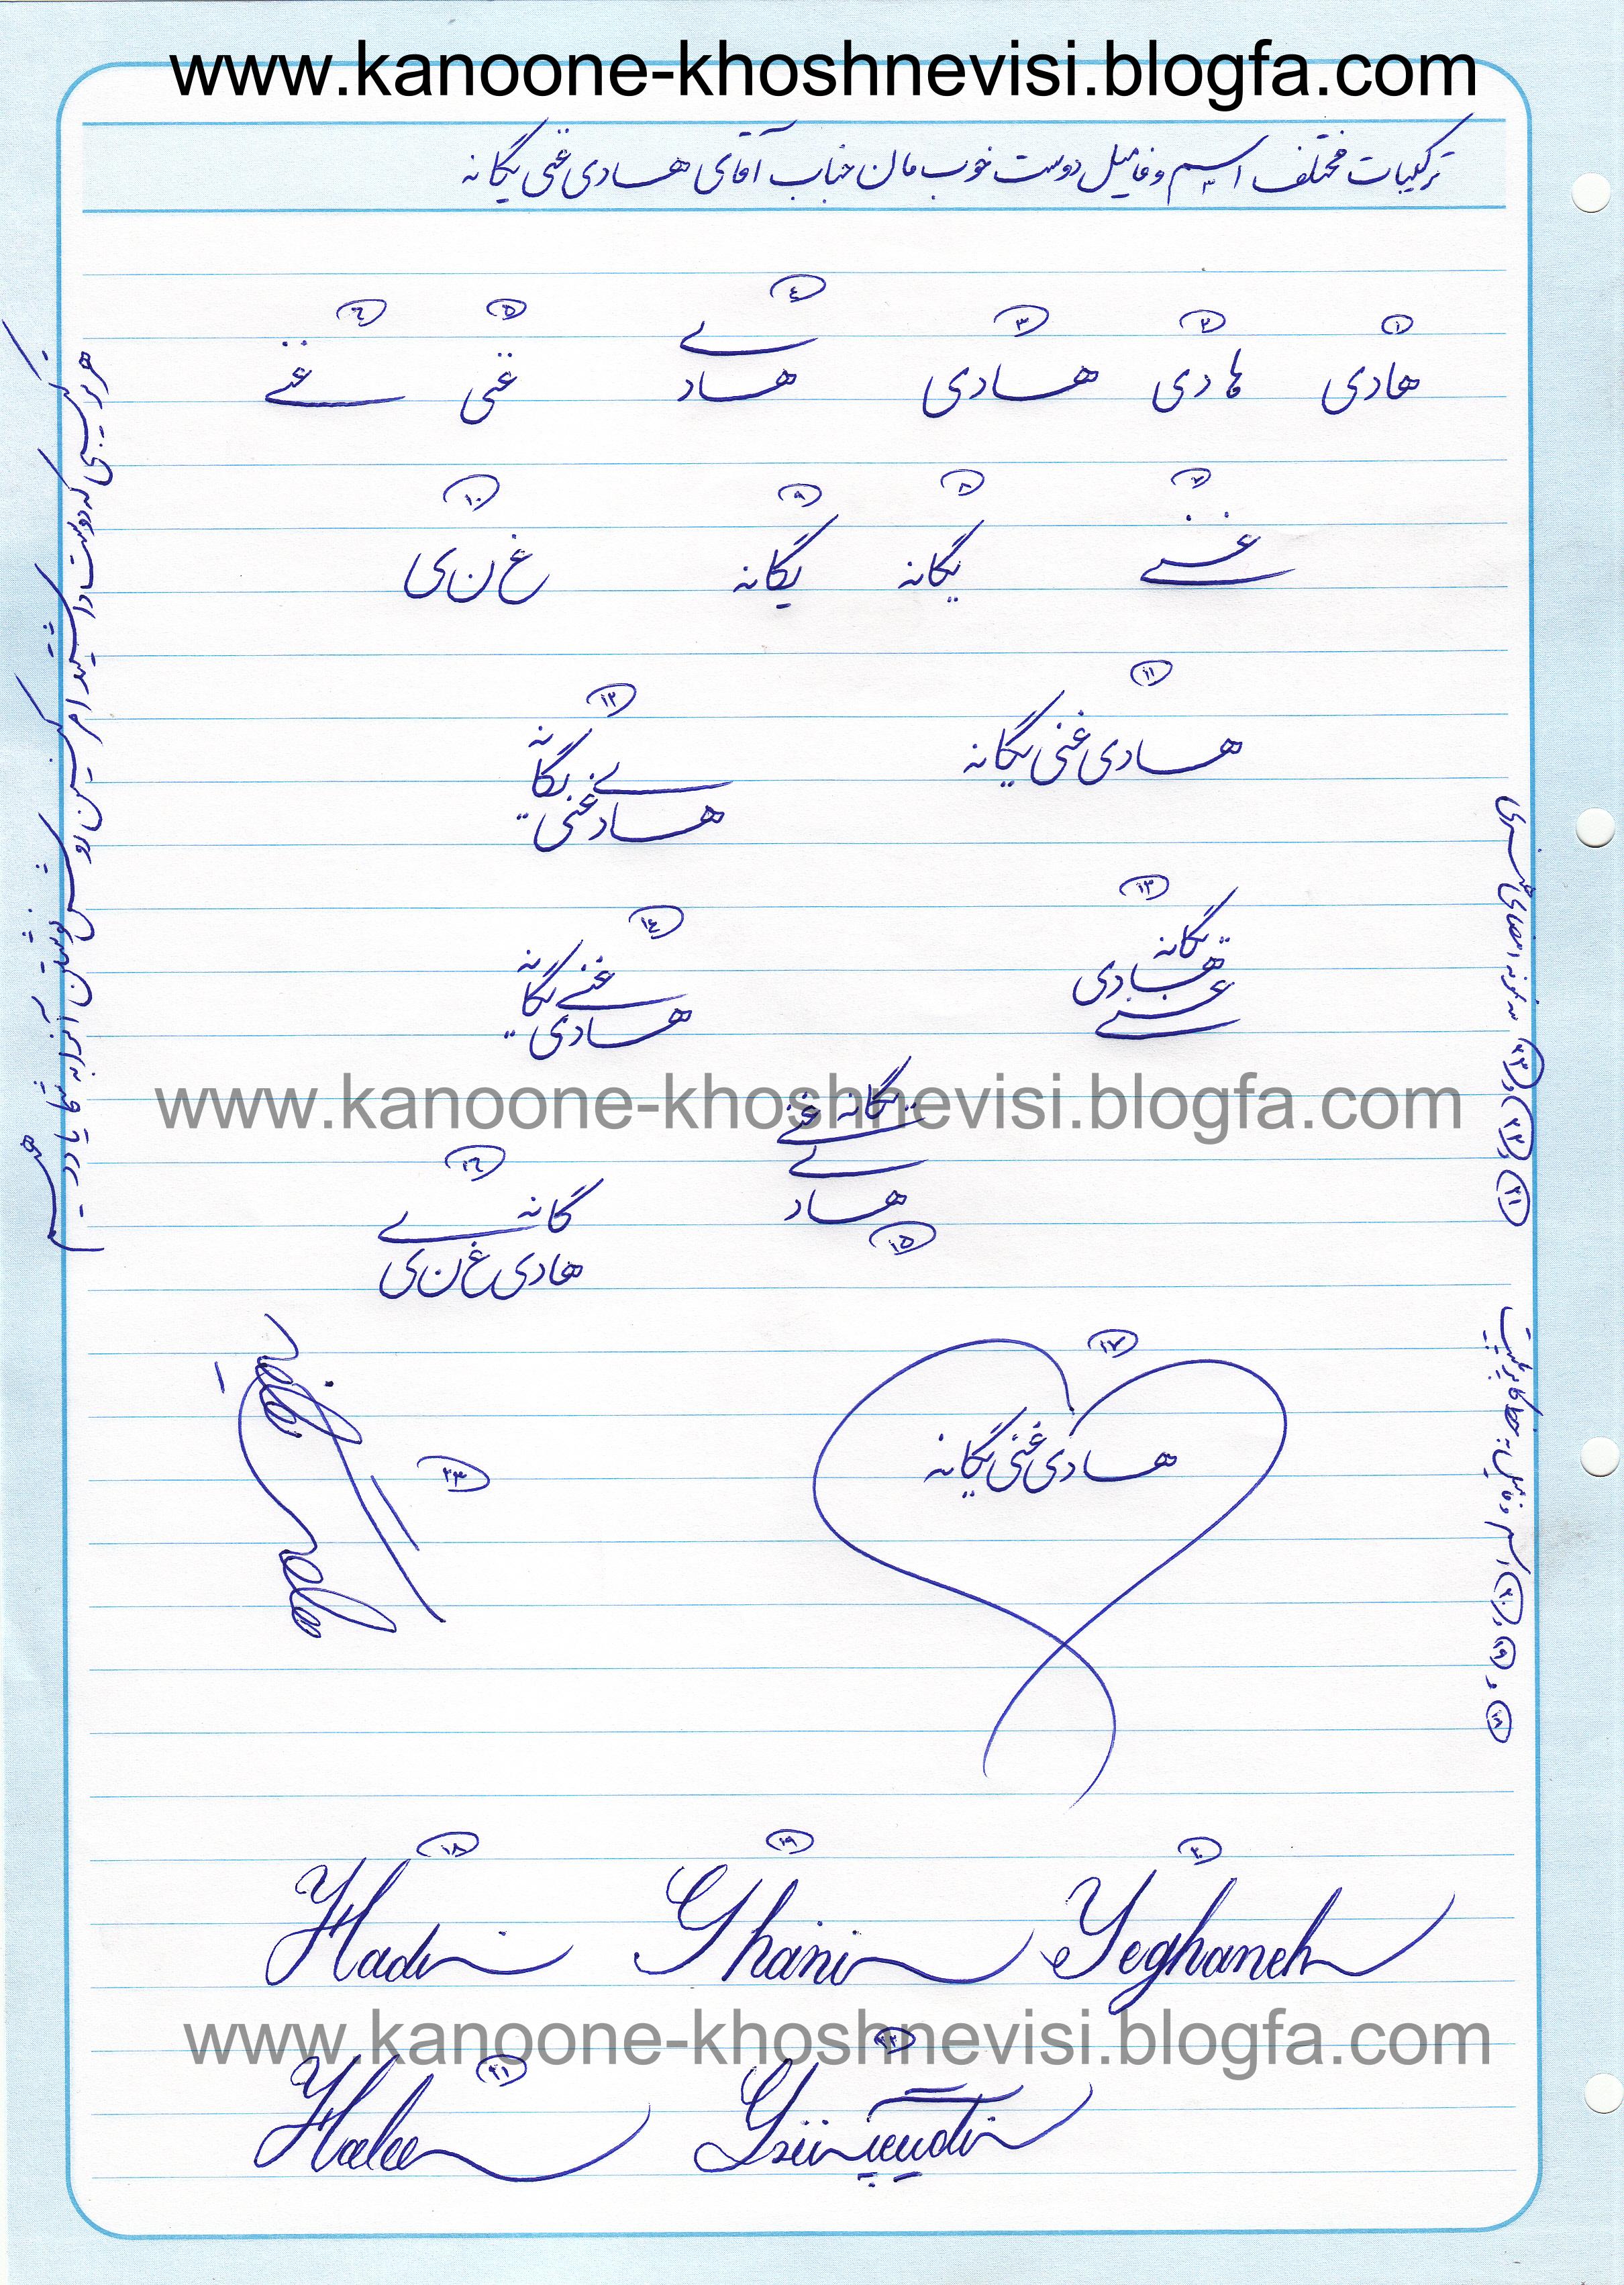 www.kanoone-khoshnevisi.blogfa.com
ترکیبات مختلف اسم و فامیل دوست خوب مان جناب آقای هادی غنی یگانه
۱ ۲ ۳ ۴ ۵ ۶
هادی هادی هادی هادی غنی غنی
۷ ۸ ۹ ۱۰
غنی یگانه یگانه غ ن ی
۱۱ ۱۲
هادی غنی یگانه
هادی غنی یگانه
۱۳ ۱۴
یگانه
هادی
غنی
غنی یگانه
هادی
www.kanoone-khoshnevisi.blogfa.com
یگانه غنی
هادی
۱۵
۱۶
یگانه
هادی غ ن ی
۱۷
هادی غنی یگانه
۲۳
۱۸ ۱۹ ۲۰
Hadi Ghani Yeghaneh
www.kanoone-khoshnevisi.blogfa.com
۲۱ ۲۲
هر ترکیبی که دوست داشتید امر کنین روش نوشتن آنرا به شما یاد دهیم
۲۱ و ۲۲ و ۲۳ سه نمونه امضای هنری
۱۸ و ۱۹ و ۲۰ اسم و فامیل به خط کاپرپلیت